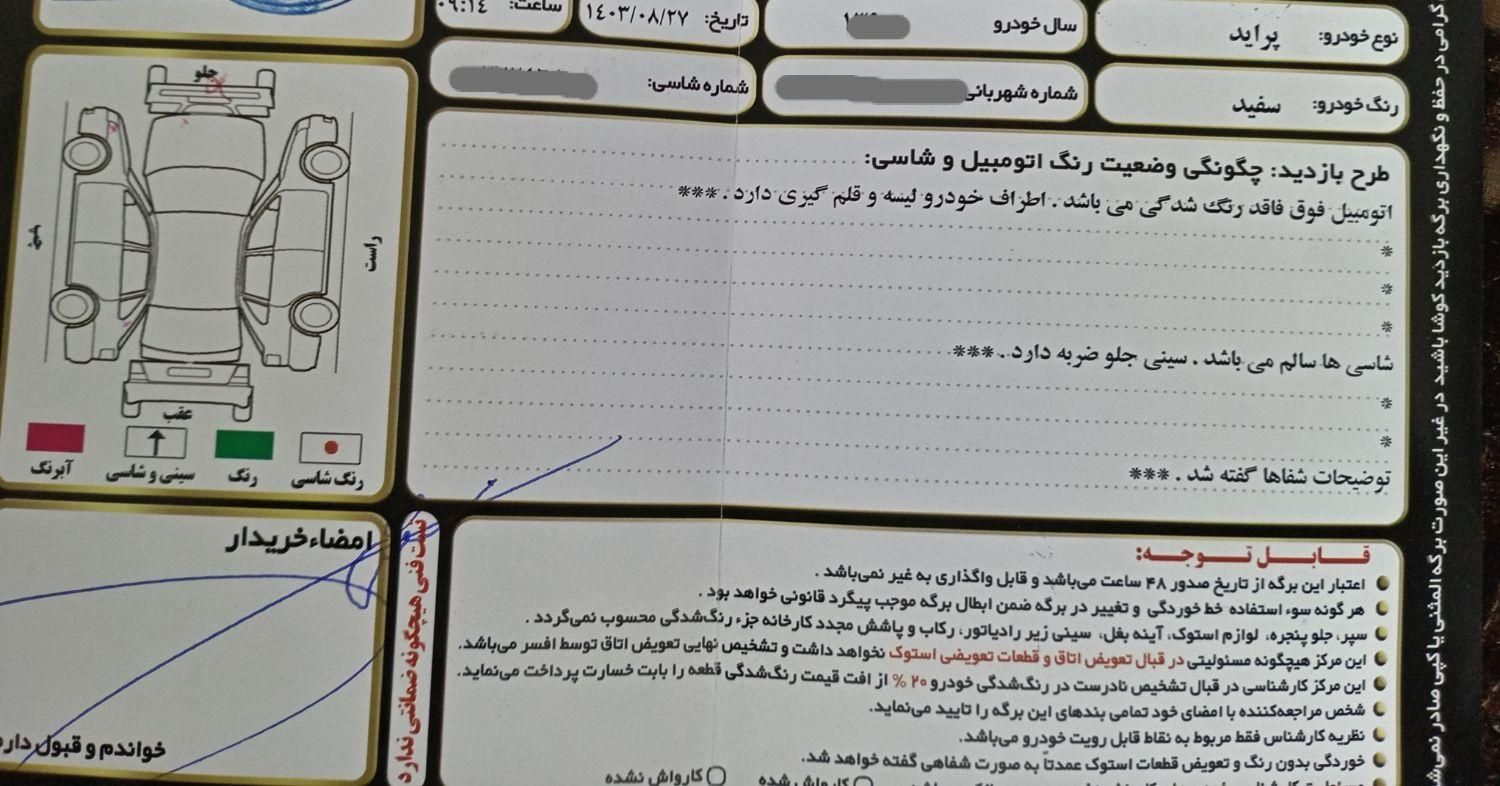 نوع خودرو: پراید
سال خودرو
تاریخ: ۱۴۰۳/۰۸/۲۷
ساعت: ۰۹:۱۴
رنگ خودرو: سفید
شماره شهربانی
شماره شاسی:
طرح بازدید: چگونگی وضعیت رنگ اتومبیل و شاسی:
اتومبیل فوق فاقد رنگ شدگی می باشد . اطراف خودرو لیسه و قلم گیری دارد . ***
*
*
*
شاسی ها سالم می باشد . سینی جلو ضربه دارد . ***
*
*
توضیحات شفاها گفته شد . ***
جلو
راست
عقب
رنگ شاسی
رنگ
سینی و شاسی
آبرنگ
قابل توجه:
اعتبار این برگه از تاریخ صدور ۴۸ ساعت می‌باشد و قابل واگذاری به غیر نمی‌باشد .
هر گونه سوء استفاده خط خوردگی و تغییر در برگه ضمن ابطال برگه موجب پیگرد قانونی خواهد بود .
سپر، جلو پنجره، لوازم استوک، آینه بغل، سینی زیر رادیاتور، رکاب و پاشش مجدد کارخانه جزء رنگ‌شدگی محسوب نمی‌گردد .
این مرکز هیچگونه مسئولیتی در قبال تعویض اتاق و قطعات تعویضی استوک نخواهد داشت و تشخیص نهایی تعویض اتاق توسط افسر می‌باشد.
این مرکز کارشناسی در قبال تشخیص نادرست در رنگ‌شدگی خودرو ۲۰ % از افت قیمت رنگ‌شدگی قطعه را بابت خسارت پرداخت می‌نماید.
شخص مراجعه‌کننده با امضای خود تمامی بندهای این برگه را تایید می‌نماید.
نظریه کارشناس فقط مربوط به نقاط قابل رویت خودرو می‌باشد.
خوردگی بدون رنگ و تعویض قطعات استوک عمدتاً به صورت شفاهی گفته خواهد شد.
کارواش شده
کارواش نشده
تست فنی هیچگونه ضمانتی ندارد
امضاء خریدار
خواندم و قبول دارم
گرامی در حفظ و نگهداری برگه بازدید کوشا باشید در غیر این صورت برگه المثنی یا کپی صادر نمی‌ش